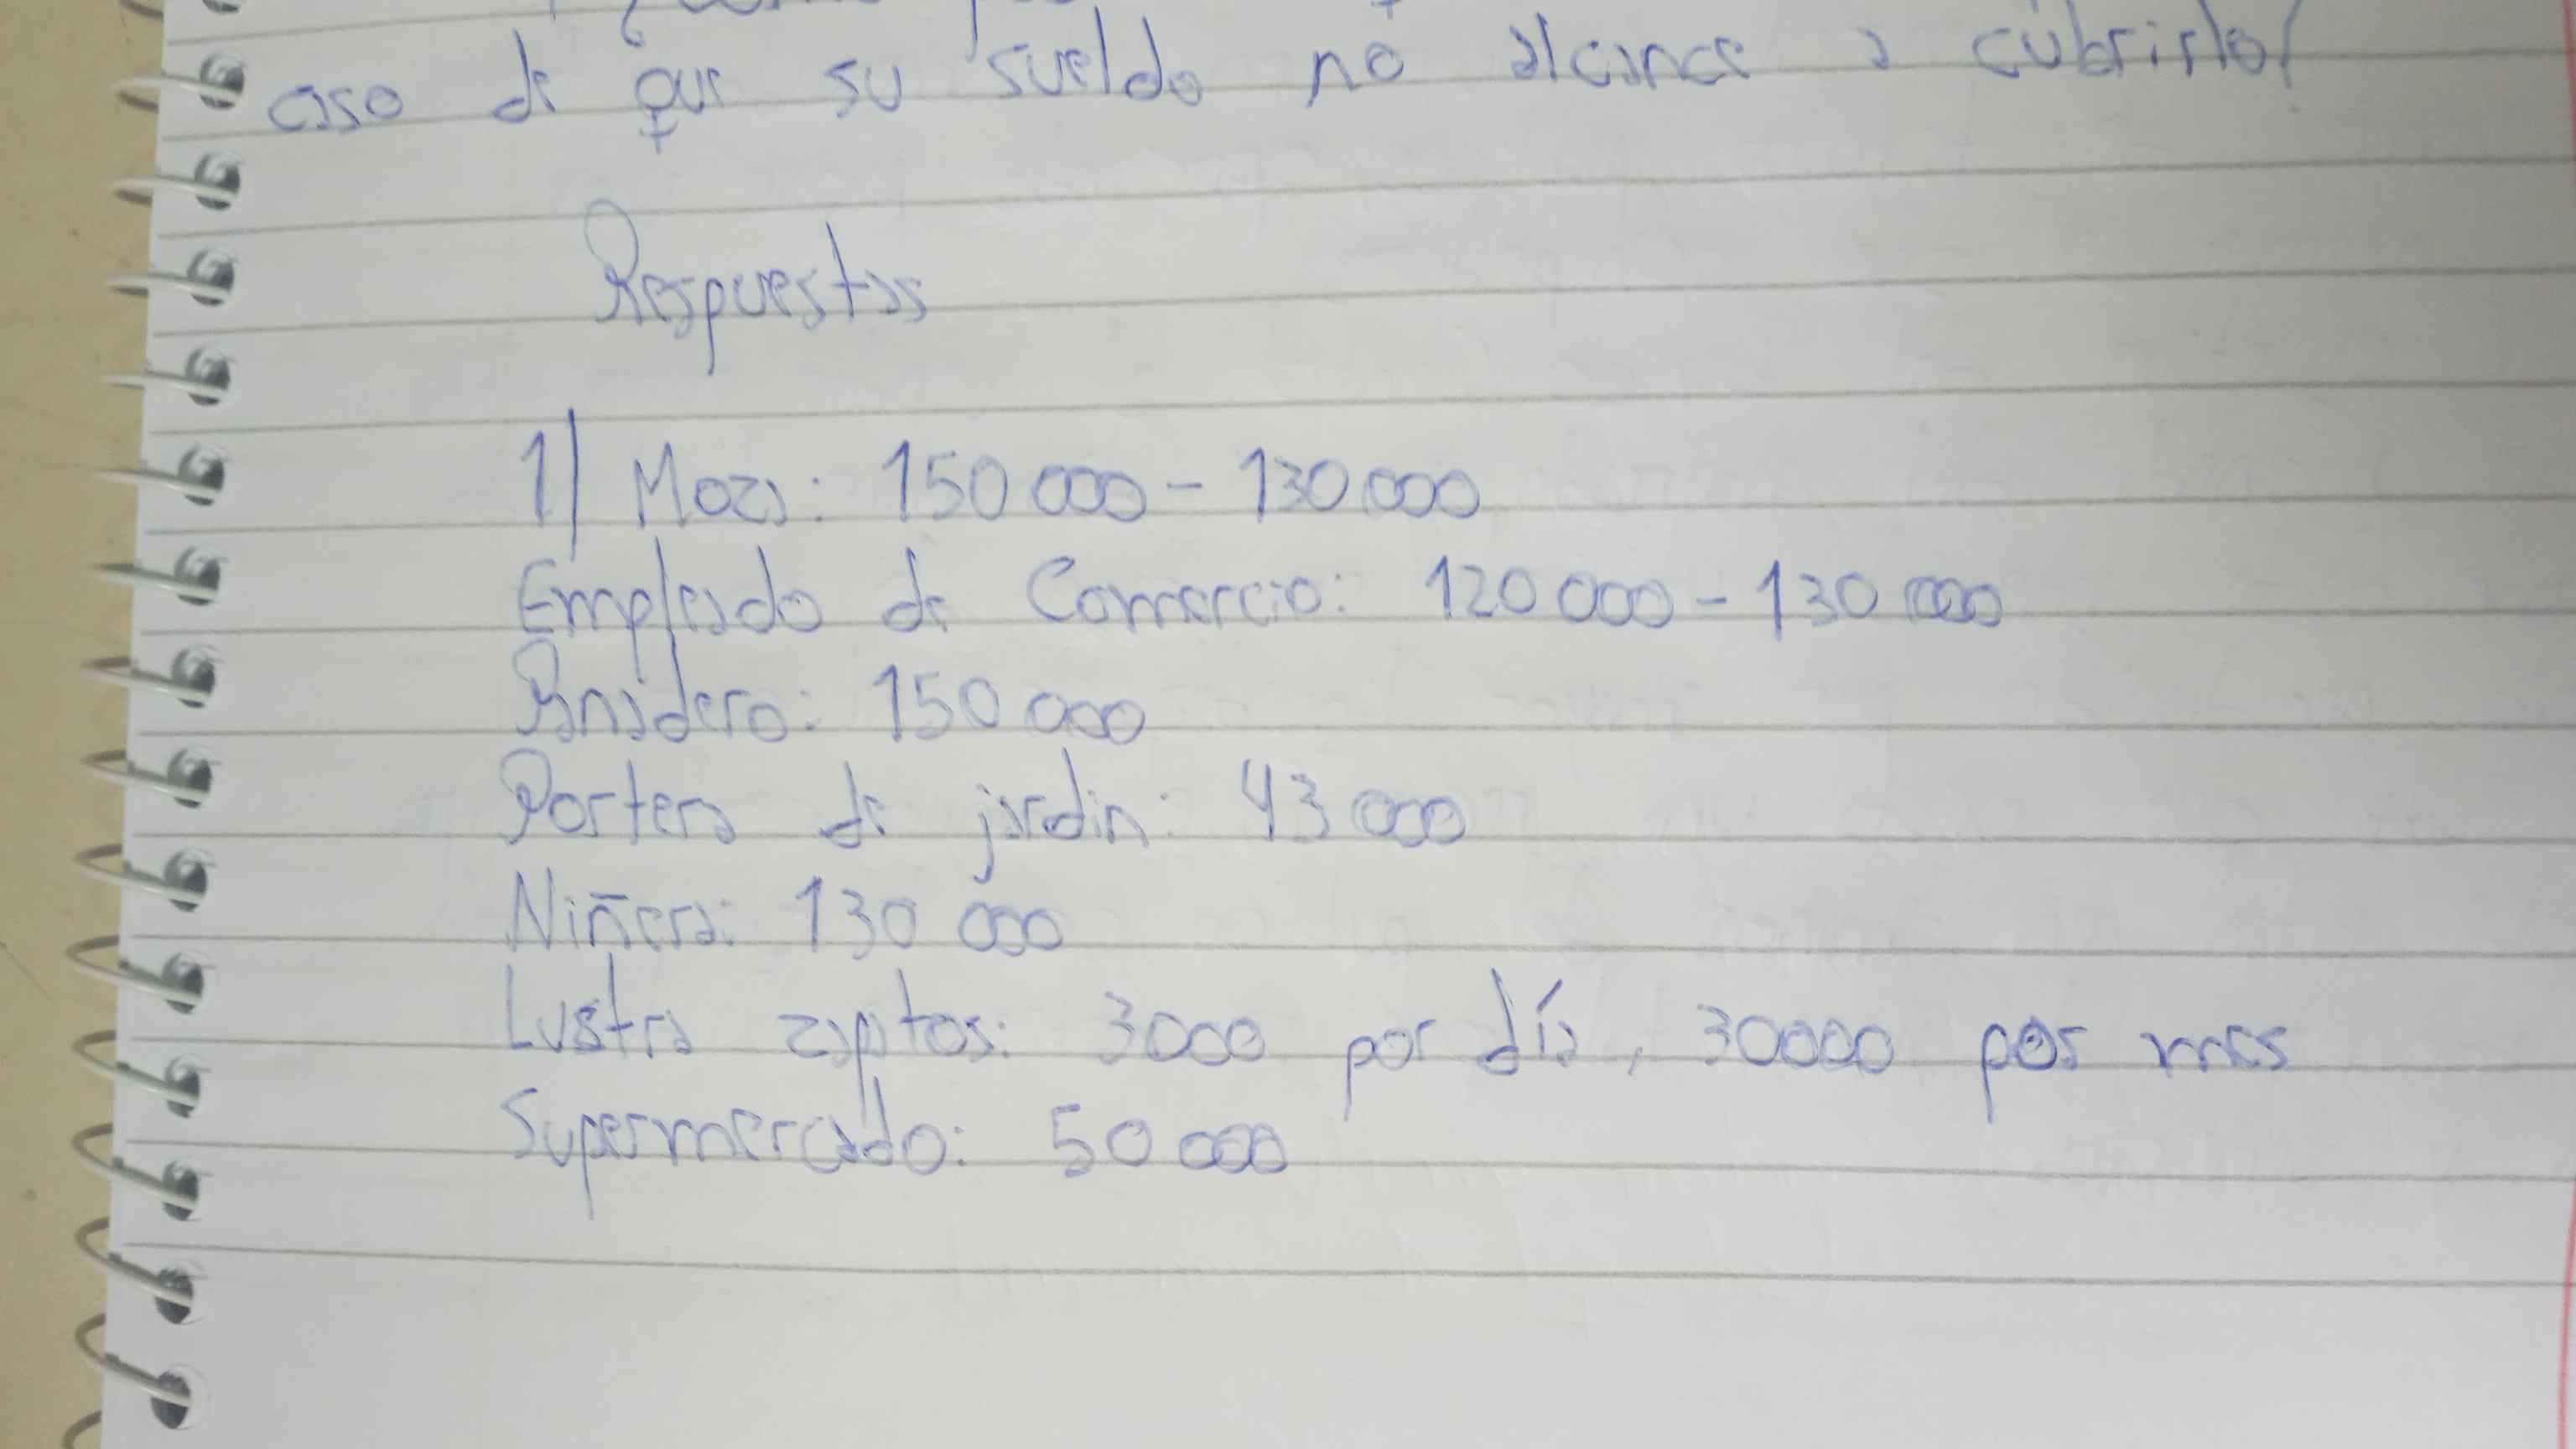 caso de que su sueldo no alcance a cubrirlo?
Respuestas
1) Moza: 150 000 - 130 000
Empleado de Comercio: 120 000 - 130 000
Panadero: 150 000
Portera de jardin: 43 000
Niñera: 130 000
Lustra zaptos: 3000 por día, 30000 por mes
Supermercado: 50 000